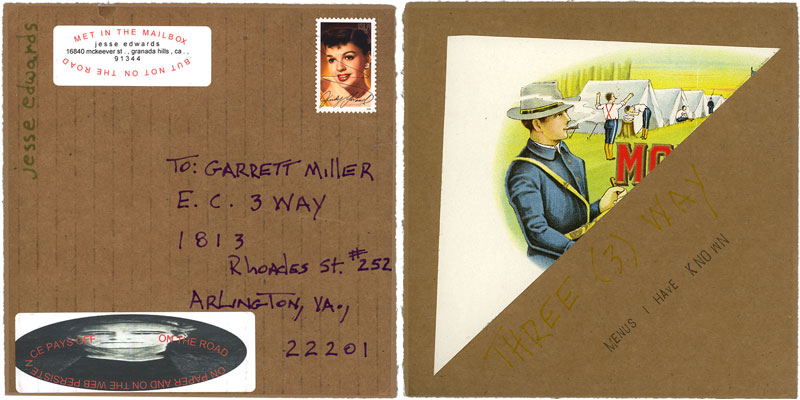 jesse edwards
MET IN THE MAILBOX
jesse edwards
16840 mckeever st . , granada hills , ca . .
91344
BUT NOT ON THE ROAD
Judy Garland
TO: GARRETT MILLER
E. C. 3 WAY
1813
RHOADES ST. #252
ARLINGTON, VA.,
22201
ON THE ROAD
ON PAPER AND ON THE WEB PERSISTENCE PAYS OFF
THREE (3) WAY
MENUS I HAVE KNOWN